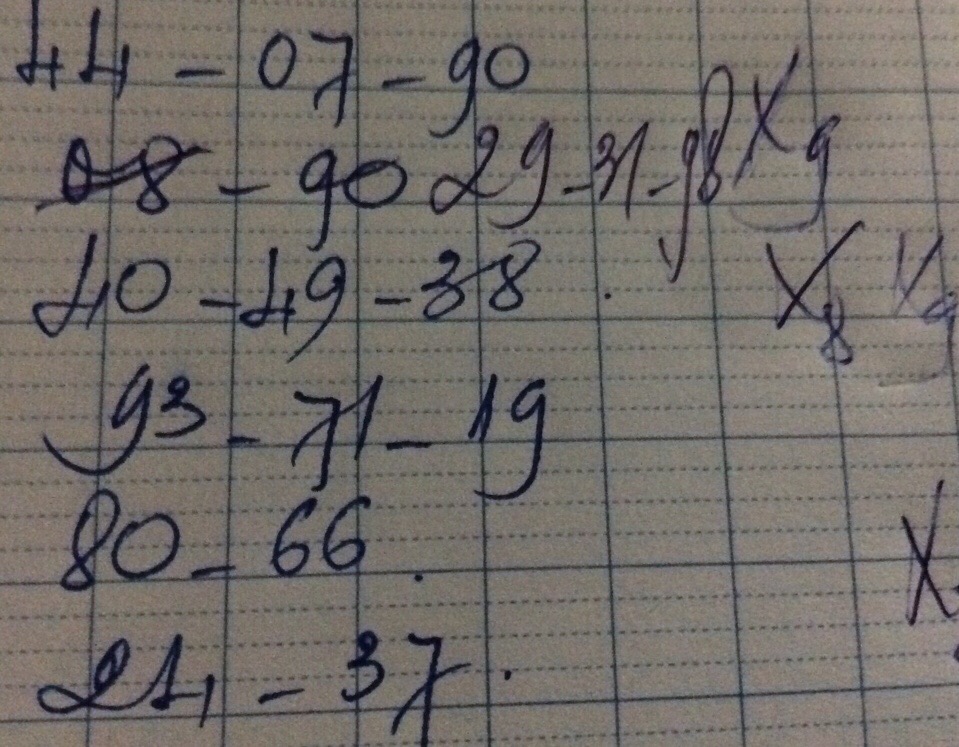 44 - 07 - 90
08 - 90 29 - 31 - 98 X9
40 - 49 - 38 . X8 X9
93 - 71 - 19
80 - 66 .
X
21 - 37 .